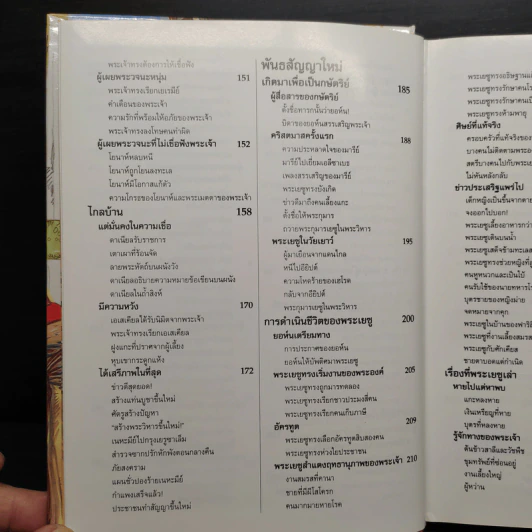 พระเจ้าทรงต้องการให้เชื่อฟัง
ผู้เผยพระวจนะหนุ่ม 151
พระเจ้าทรงเรียกเยเรมีย์
คำเตือนของพระเจ้า
ความรักที่พร้อมให้อภัยของพระเจ้า
พระเจ้าทรงลงโทษคนทำผิด
ผู้เผยพระวจนะที่ไม่เชื่อฟังพระเจ้า 152
โยนาห์หลบหนี
โยนาห์ถูกโยนลงทะเล
โยนาห์มีโอกาสแก้ตัว
ความโกรธของโยนาห์และพระเมตตาของพระเจ้า
ไกลบ้าน 158
แต่มั่นคงในความเชื่อ
ดาเนียลรับราชการ
เตาเผาที่ร้อนจัด
ลายพระหัตถ์บนผนังวัง
ดาเนียลอธิบายความหมายข้อเขียนบนผนัง
ดาเนียลในถ้ำสิงห์
มีความหวัง 170
เอเสเคียลได้รับนิมิตจากพระเจ้า
พระเจ้าทรงเรียกเอเสเคียล
ฝูงแกะที่ปราศจากผู้เลี้ยง
หุบเขากระดูกแห้ง
ได้เสรีภาพในที่สุด 172
ข่าวดีสุดยอด!
สร้างแท่นบูชาขึ้นใหม่
ศัตรูสร้างปัญหา
"สร้างพระวิหารขึ้นใหม่!"
เนหะมีย์ไปกรุงเยรูซาเล็ม
สำรวจซากปรักหักพังตอนกลางคืน
ภัยสงคราม
แผนชั่วปองร้ายเนหะมีย์
กำแพงเสร็จแล้ว!
ประชาชนทำสัญญาขึ้นใหม่
พันธสัญญาใหม่
เกิดมาเพื่อเป็นกษัตริย์ 185
ผู้สื่อสารของกษัตริย์
ตั้งชื่อทารกนั้นว่ายอห์น!
บิดาของยอห์นสรรเสริญพระเจ้า
คริสตมาสครั้งแรก 188
ความประหลาดใจของมารีย์
มารีย์ไปเยี่ยมเอลีซาเบธ
เพลงสรรเสริญของมารีย์
พระเยซูทรงบังเกิด
ข่าวดีมาถึงคนเลี้ยงแกะ
ตั้งชื่อให้พระกุมาร
ถวายพระกุมารเยซูในพระวิหาร
พระเยซูในวัยเยาว์ 195
ผู้มาเยือนจากแดนไกล
หนีไปอียิปต์
ความโหดร้ายของเฮโรด
กลับจากอียิปต์
พระกุมารเยซูในพระวิหาร
การดำเนินชีวิตของพระเยซู 200
ยอห์นเตรียมทาง
การประกาศของยอห์น
ยอห์นให้บัพติศมาพระเยซู
พระเยซูทรงเริ่มงานของพระองค์ 205
พระเยซูทรงถูกมารทดลอง
พระเยซูทรงเรียกชาวประมงสี่คน
พระเยซูทรงเรียกคนเก็บภาษี
อัครทูต 209
พระเยซูทรงเลือกอัครทูตสิบสองคน
พระเยซูทรงห่วงใยประชาชน
พระเยซูสำแดงฤทธานุภาพของพระเจ้า 210
งานสมรสที่คานา
ชายที่มีผีโสโครก
คนมากมายหายโรค
พระเยซูทรงอธิษฐาน
พระเยซูทรงรักษาคนโร
พระเยซูทรงรักษาคน
พระเยซูทรงห้ามพายุ
ศิษย์ที่แท้จริง
ครอบครัวที่แท้จริงของ
บางคนไม่ติดตามพระอง
สตรีบางคนไปกับพระเย
ไม่หันหลังกลับ
ข่าวประเสริฐแพร่ไป
เด็กหญิงเป็นขึ้นจากตาย
จงออกไปบอก!
พระเยซูเลี้ยงอาหารกว่า
พระเยซูเดินบนน้ำ
พระเยซูเสด็จข้ามทะเลส
พระเยซูทรงช่วยหญิงที่
คนหูหนวกและเป็นใบ้
คนรับใช้ของนายทหารโร
บุตรชายของหญิงม่าย
จดหมายจากคุก
พระเยซูในบ้านของฟาริสี
พระเยซูที่งานเลี้ยงสมรส
พระเยซูกับศักเคียส
ชายตาบอดแต่กำเนิด
เรื่องที่พระเยซูเล่า
หายไปแต่หาพบ
แกะหลงหาย
เงินเหรียญที่หาย
บุตรที่หลงหาย
รู้จักทางของพระเจ้า
คืนข้าวสาลีและวัชพืช
ขุมทรัพย์ที่ซ่อนอยู่
งานเลี้ยงใหญ่
ผู้หว่าน